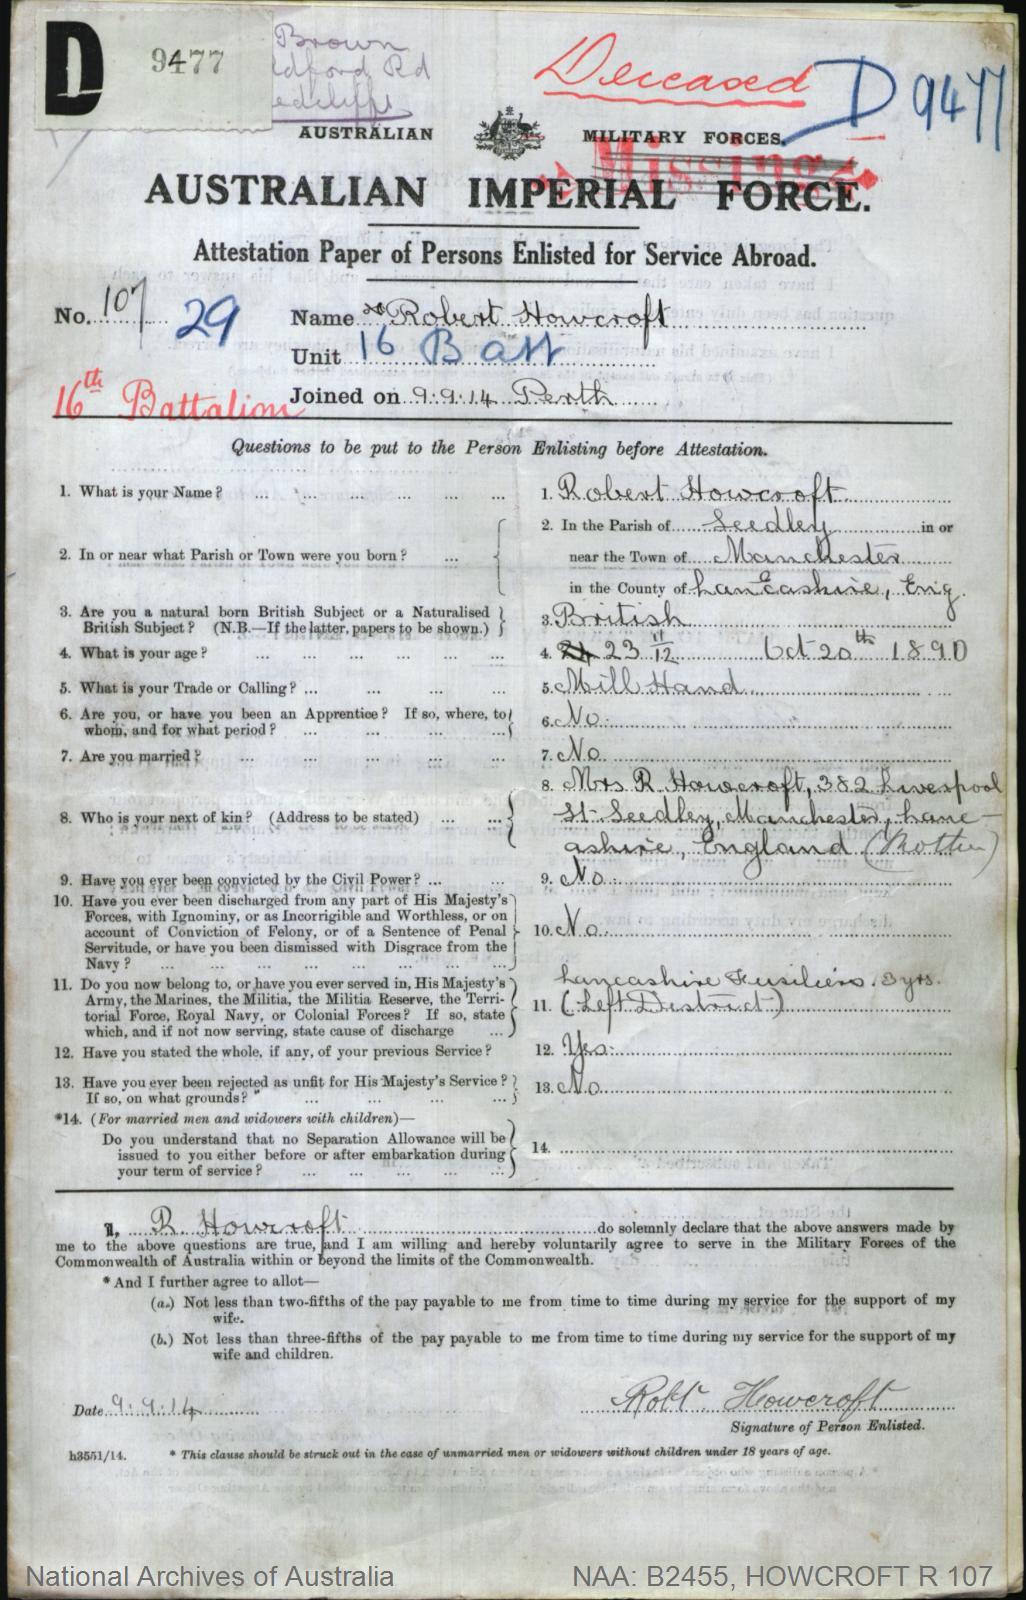 D
9477
Brown
Rd
Deceased
D 9477
AUSTRALIAN MILITARY FORCES.
Missing
AUSTRALIAN IMPERIAL FORCE.
Attestation Paper of Persons Enlisted for Service Abroad.
No. 107 29 Name Robert Howcroft
Unit 16 Batt
16th Battalion Joined on 9.9.14 Perth
Questions to be put to the Person Enlisting before Attestation.
1. What is your Name? ... ... ... ... ... ... 1. Robert Howcroft
2. In or near what Parish or Town were you born? ... 2. In the Parish of Seedley in or
near the Town of Manchester
in the County of Lancashire, Eng.
3. Are you a natural born British Subject or a Naturalised
British Subject? (N.B.—If the latter, papers to be shown.) 3. British
4. What is your age? ... ... ... ... ... ... 4. 24 23 11/12 Oct 20th 1890
5. What is your Trade or Calling? ... ... ... ... 5. Mill Hand
6. Are you, or have you been an Apprentice? If so, where, to
whom, and for what period? ... ... ... ... 6. No.
7. Are you married? ... ... ... ... ... 7. No
8. Who is your next of kin? (Address to be stated) ... ... 8. Mrs R. Howcroft, 382 Liverpool
St. Seedley, Manchester, Lanc-
ashire, England (Mother)
9. Have you ever been convicted by the Civil Power? ... ... 9. No.
10. Have you ever been discharged from any part of His Majesty's
Forces, with Ignominy, or as Incorrigible and Worthless, or on
account of Conviction of Felony, or of a Sentence of Penal
Servitude, or have you been dismissed with Disgrace from the
Navy? ... ... ... ... ... ... ... ... 10. No.
11. Do you now belong to, or have you ever served in, His Majesty's
Army, the Marines, the Militia, the Militia Reserve, the Terri-
torial Force, Royal Navy, or Colonial Forces? If so, state
which, and if not now serving, state cause of discharge ...
Lancashire Fusiliers. 3 yrs.
11. (Left District)
12. Have you stated the whole, if any, of your previous Service? 12. Yes.
13. Have you ever been rejected as unfit for His Majesty's Service?
If so, on what grounds? ... ... ... ... 13. No
*14. (For married men and widowers with children)—
Do you understand that no Separation Allowance will be
issued to you either before or after embarkation during
your term of service? ... ... ... ... 14.
I, R. Howcroft do solemnly declare that the above answers made by
me to the above questions are true, and I am willing and hereby voluntarily agree to serve in the Military Forces of the
Commonwealth of Australia within or beyond the limits of the Commonwealth.
* And I further agree to allot—
(a.) Not less than two-fifths of the pay payable to me from time to time during my service for the support of my
wife.
(b.) Not less than three-fifths of the pay payable to me from time to time during my service for the support of my
wife and children.
Date 9.9.14 Robt. Howcroft
Signature of Person Enlisted.
h3551/14. * This clause should be struck out in the case of unmarried men or widowers without children under 18 years of age.
National Archives of Australia NAA: B2455, HOWCROFT R 107